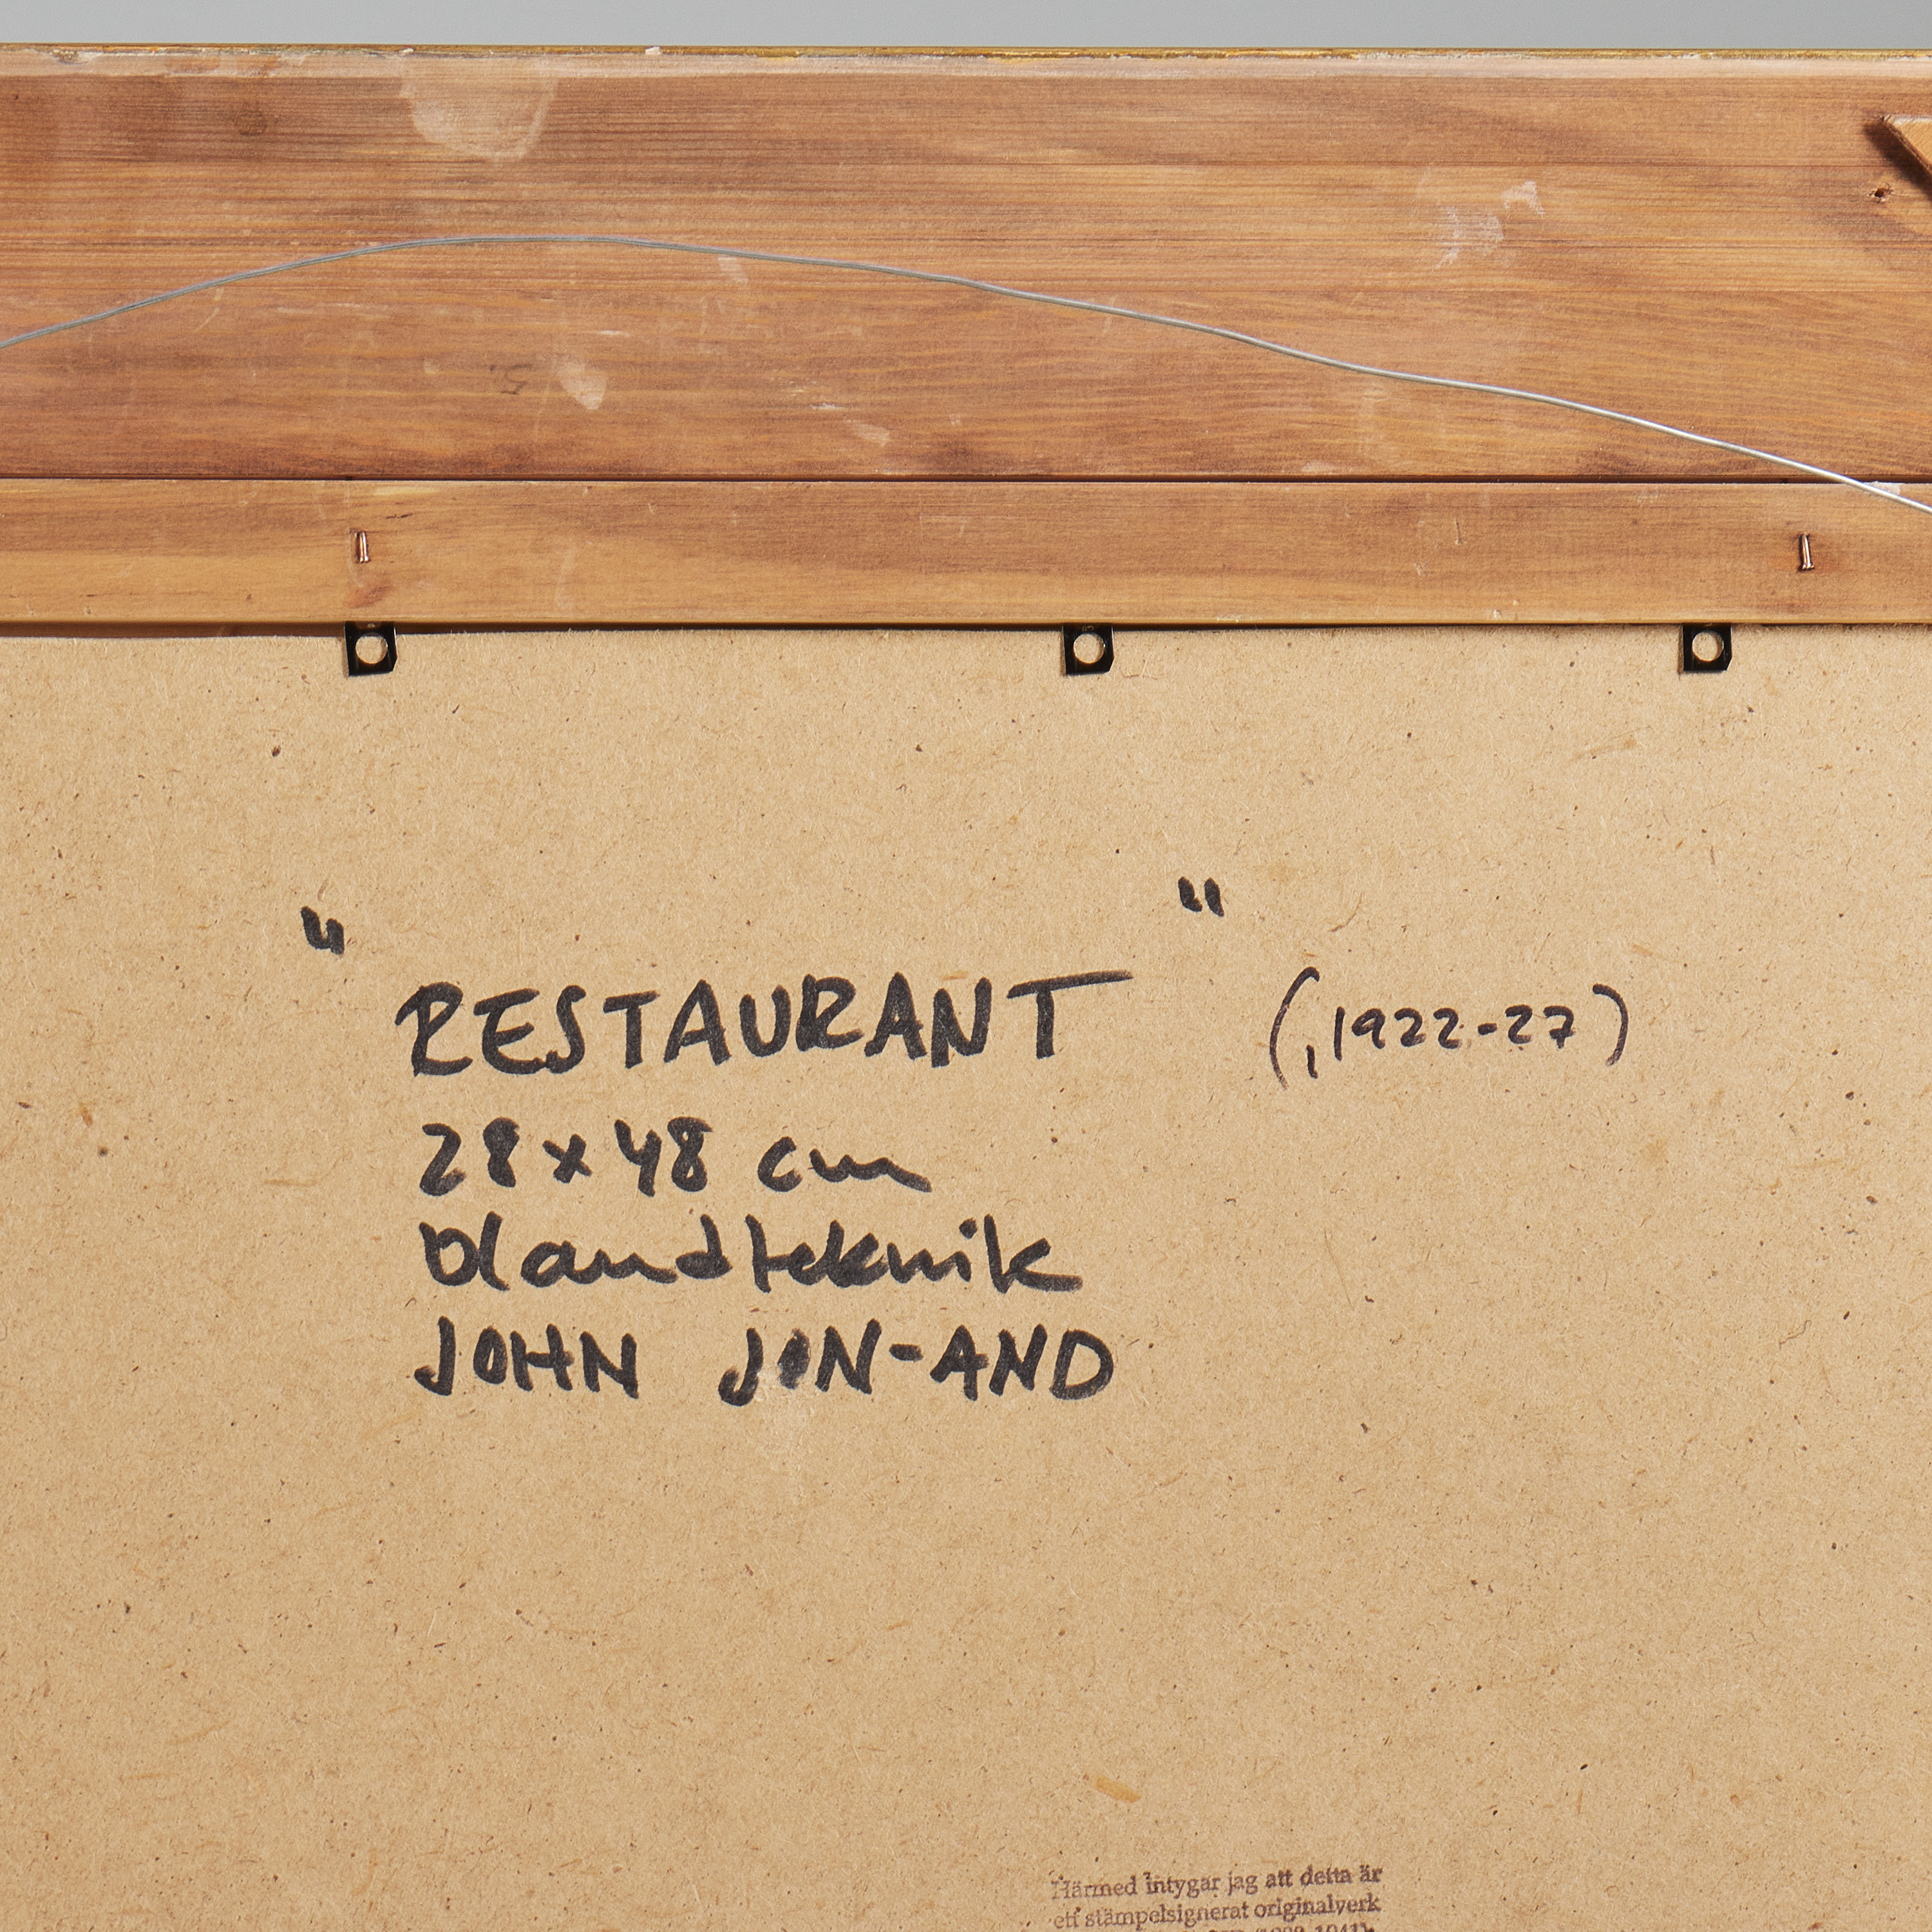 5.
" RESTAURANT " (, 1922-27)
28 x 48 cm
blandteknik
JOHN JON-AND
Härmed intygar jag att detta är
ett stämpelsignerat originalverk